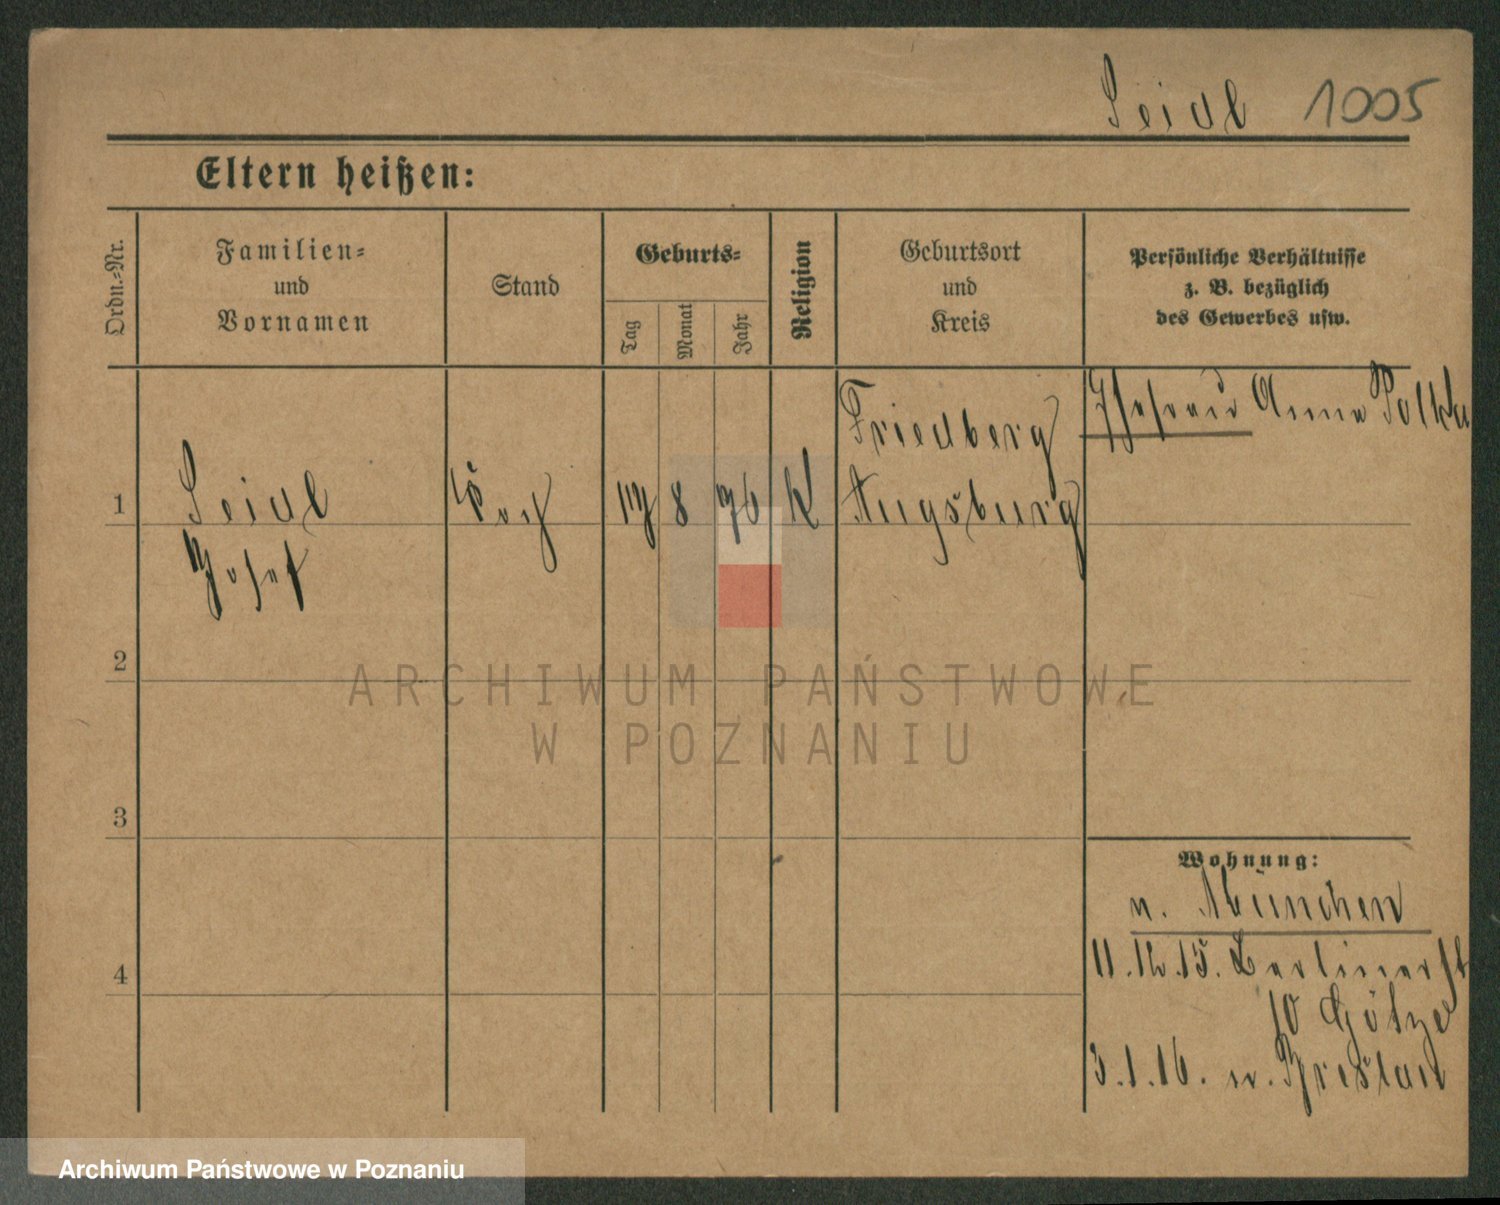 Seidl 1005
Eltern heißen:
Ordn.-Nr.
Familien-
und
Vornamen
Stand
Geburts-
Tag
Monat
Jahr
Religion
Geburtsort
und
Kreis
Persönliche Verhältnisse
z. B. bezüglich
des Gewerbes usw.
1
Seidl
Josef
Koch
17
8
76
K
Friedberg
Augsburg
Ehefrau Anna Polka
2
3
4
Wohnung:
v. München
11.12.15. Berlinerst
10 Götze
3.1.16. n. Breslau
ARCHIWUM PAŃSTWOWE
W POZNANIU
Archiwum Państwowe w Poznaniu